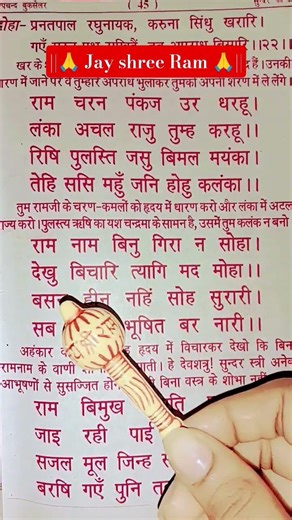 ( 45 )
|| 🙏 Jay shree Ram 🙏 ||
दोहा- प्रनतपाल रघुनायक, करुना सिंधु खरारि।
गएँ
खर के
हैं। उनकी
शरण में जाने पर वे तुम्हारे अपराध भुलाकर तुमको अपनी शरण में ले लेंगे।
राम चरन पंकज उर धरहू।
लंका अचल राजु तुम्ह करहू।।
रिषि पुलस्ति जसु बिमल मयंका।
तेहि ससि महुँ जनि होहु कलंका।।
तुम रामजी के चरण-कमलों को हृदय में धारण करो और लंका में अटल
राज्य करो। पुलस्त्य ऋषि का यश चन्द्रमा के सामन है, उसमें तुम कलंक न बनो
राम नाम बिनु गिरा न सोहा।
देखु बिचारि त्यागि मद मोहा।।
बसन हीन नहिं सोह सुरारी।
सब भूषित बर नारी।।
अहंकार हृदय में विचारकर देखो कि बिना
रामनाम के वाणी पाती। हे देवशत्रु! सुन्दर स्त्री अनेक
आभूषणों से सुसज्जित हो बिना वस्त्र के शोभा नहीं
राम बिमुख
जाइ रही पाई
सजल मूल जिन्ह
बरषि गएँ पुनि